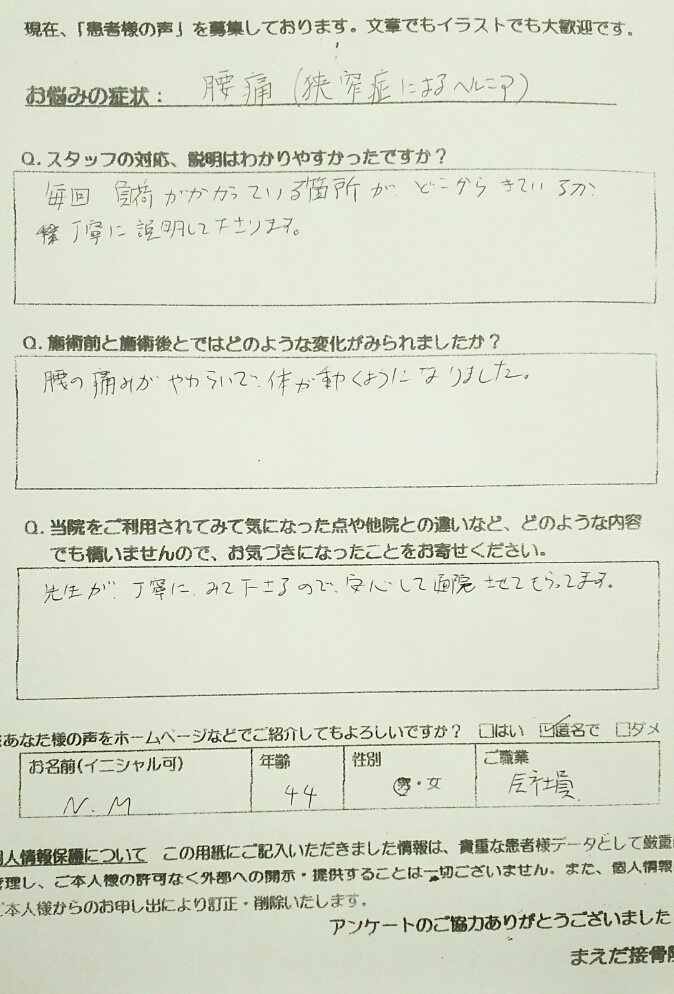 現在、「患者様の声」を募集しております。文章でもイラストでも大歓迎です。
お悩みの症状： 腰痛 (狭窄症によるヘルニア)
Q. スタッフの対応、説明はわかりやすかったですか？
毎回 負荷がかかっている箇所が、どこからきているか、
丁寧に説明して下さります。
Q. 施術前と施術後とではどのような変化がみられましたか？
腰の痛みがやわらいで、体が動くようになりました。
Q. 当院をご利用されてみて気になった点や他院との違いなど、どのような内容
でも構いませんので、お気づきになったことをお寄せください。
先生が、丁寧に、みて下さるので、安心して通院させてもらってます。
あなた様の声をホームページなどでご紹介してもよろしいですか？ □はい ☑匿名で □ダメ
お名前(イニシャル可) 年齢 性別 ご職業
N.M 44 男・女 会社員
個人情報保護について この用紙にご記入いただきました情報は、貴重な患者様データとして厳重
管理し、ご本人様の許可なく外部への開示・提供することは一切ございません。また、個人情報
ご本人様からのお申し出により訂正・削除いたします。
アンケートのご協力ありがとうございました
まえだ接骨院